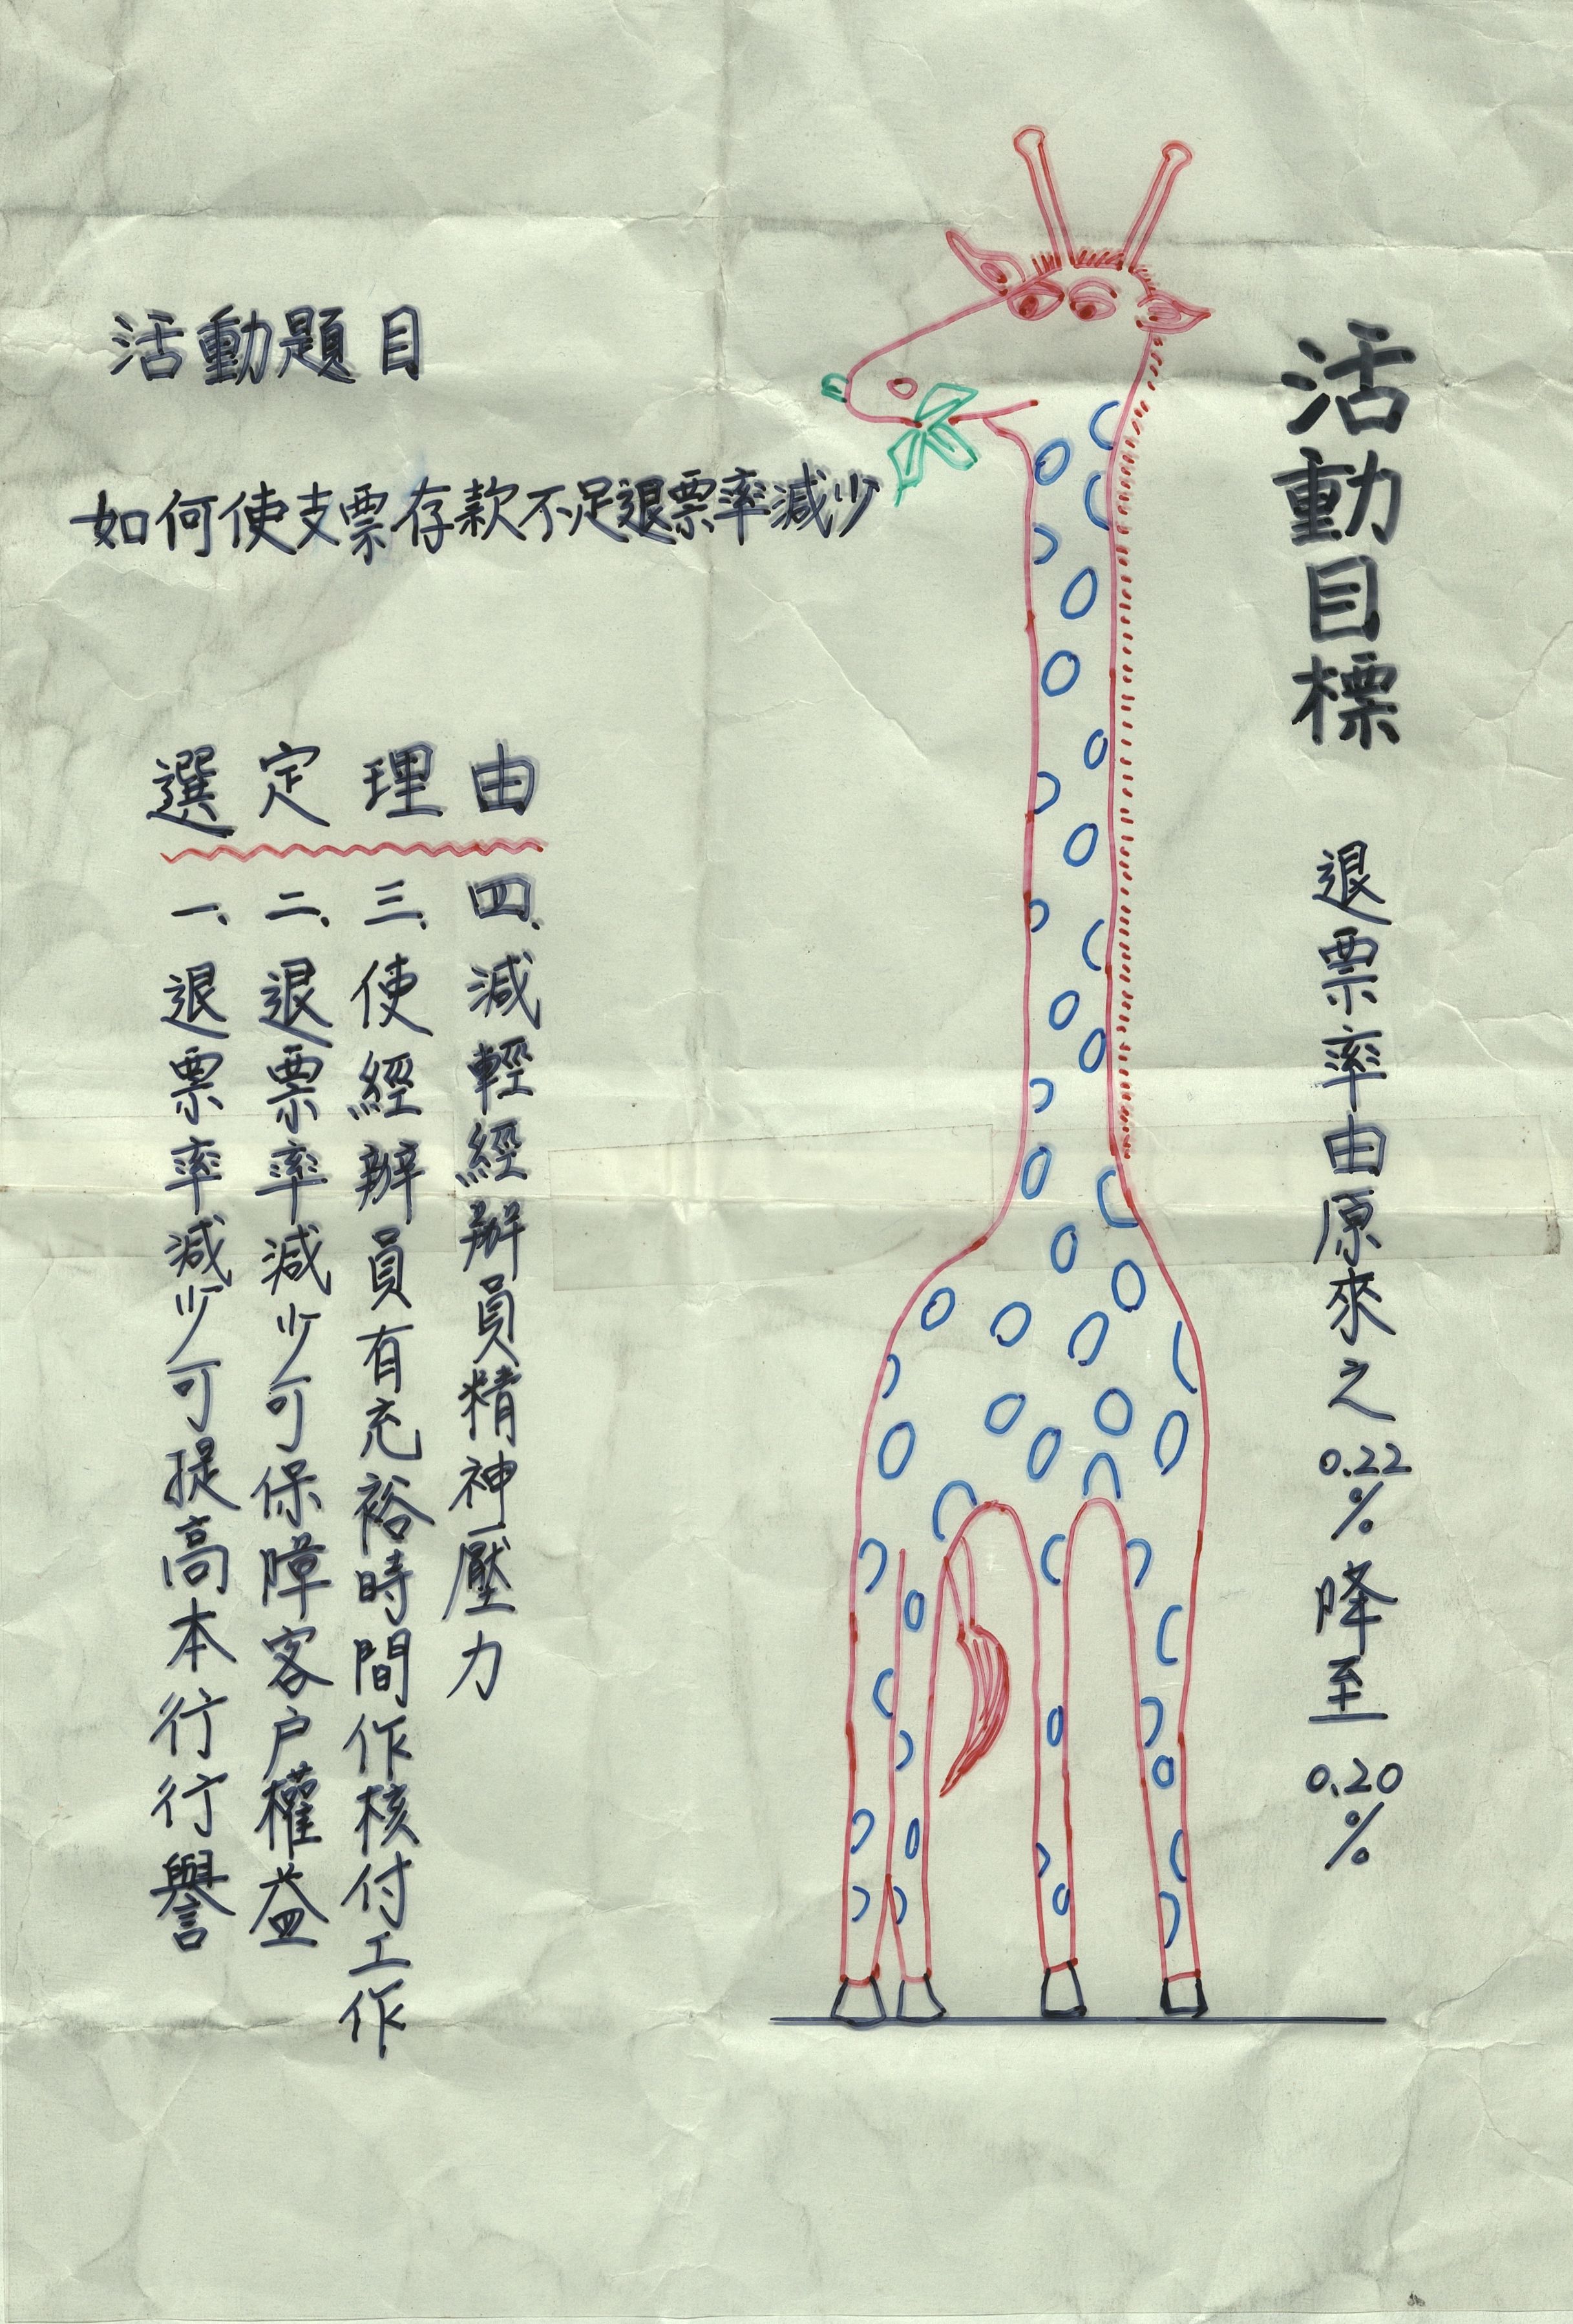 活動題目
如何使支票存款不足退票率減少
選定理由
一、退票率減少可提高本行行譽
二、退票率減少可保障客户權益
三、使經辦員有充裕時間作核付工作
四、減輕經辦員精神壓力
活動目標
退票率由原來之0.22%降至0.20%